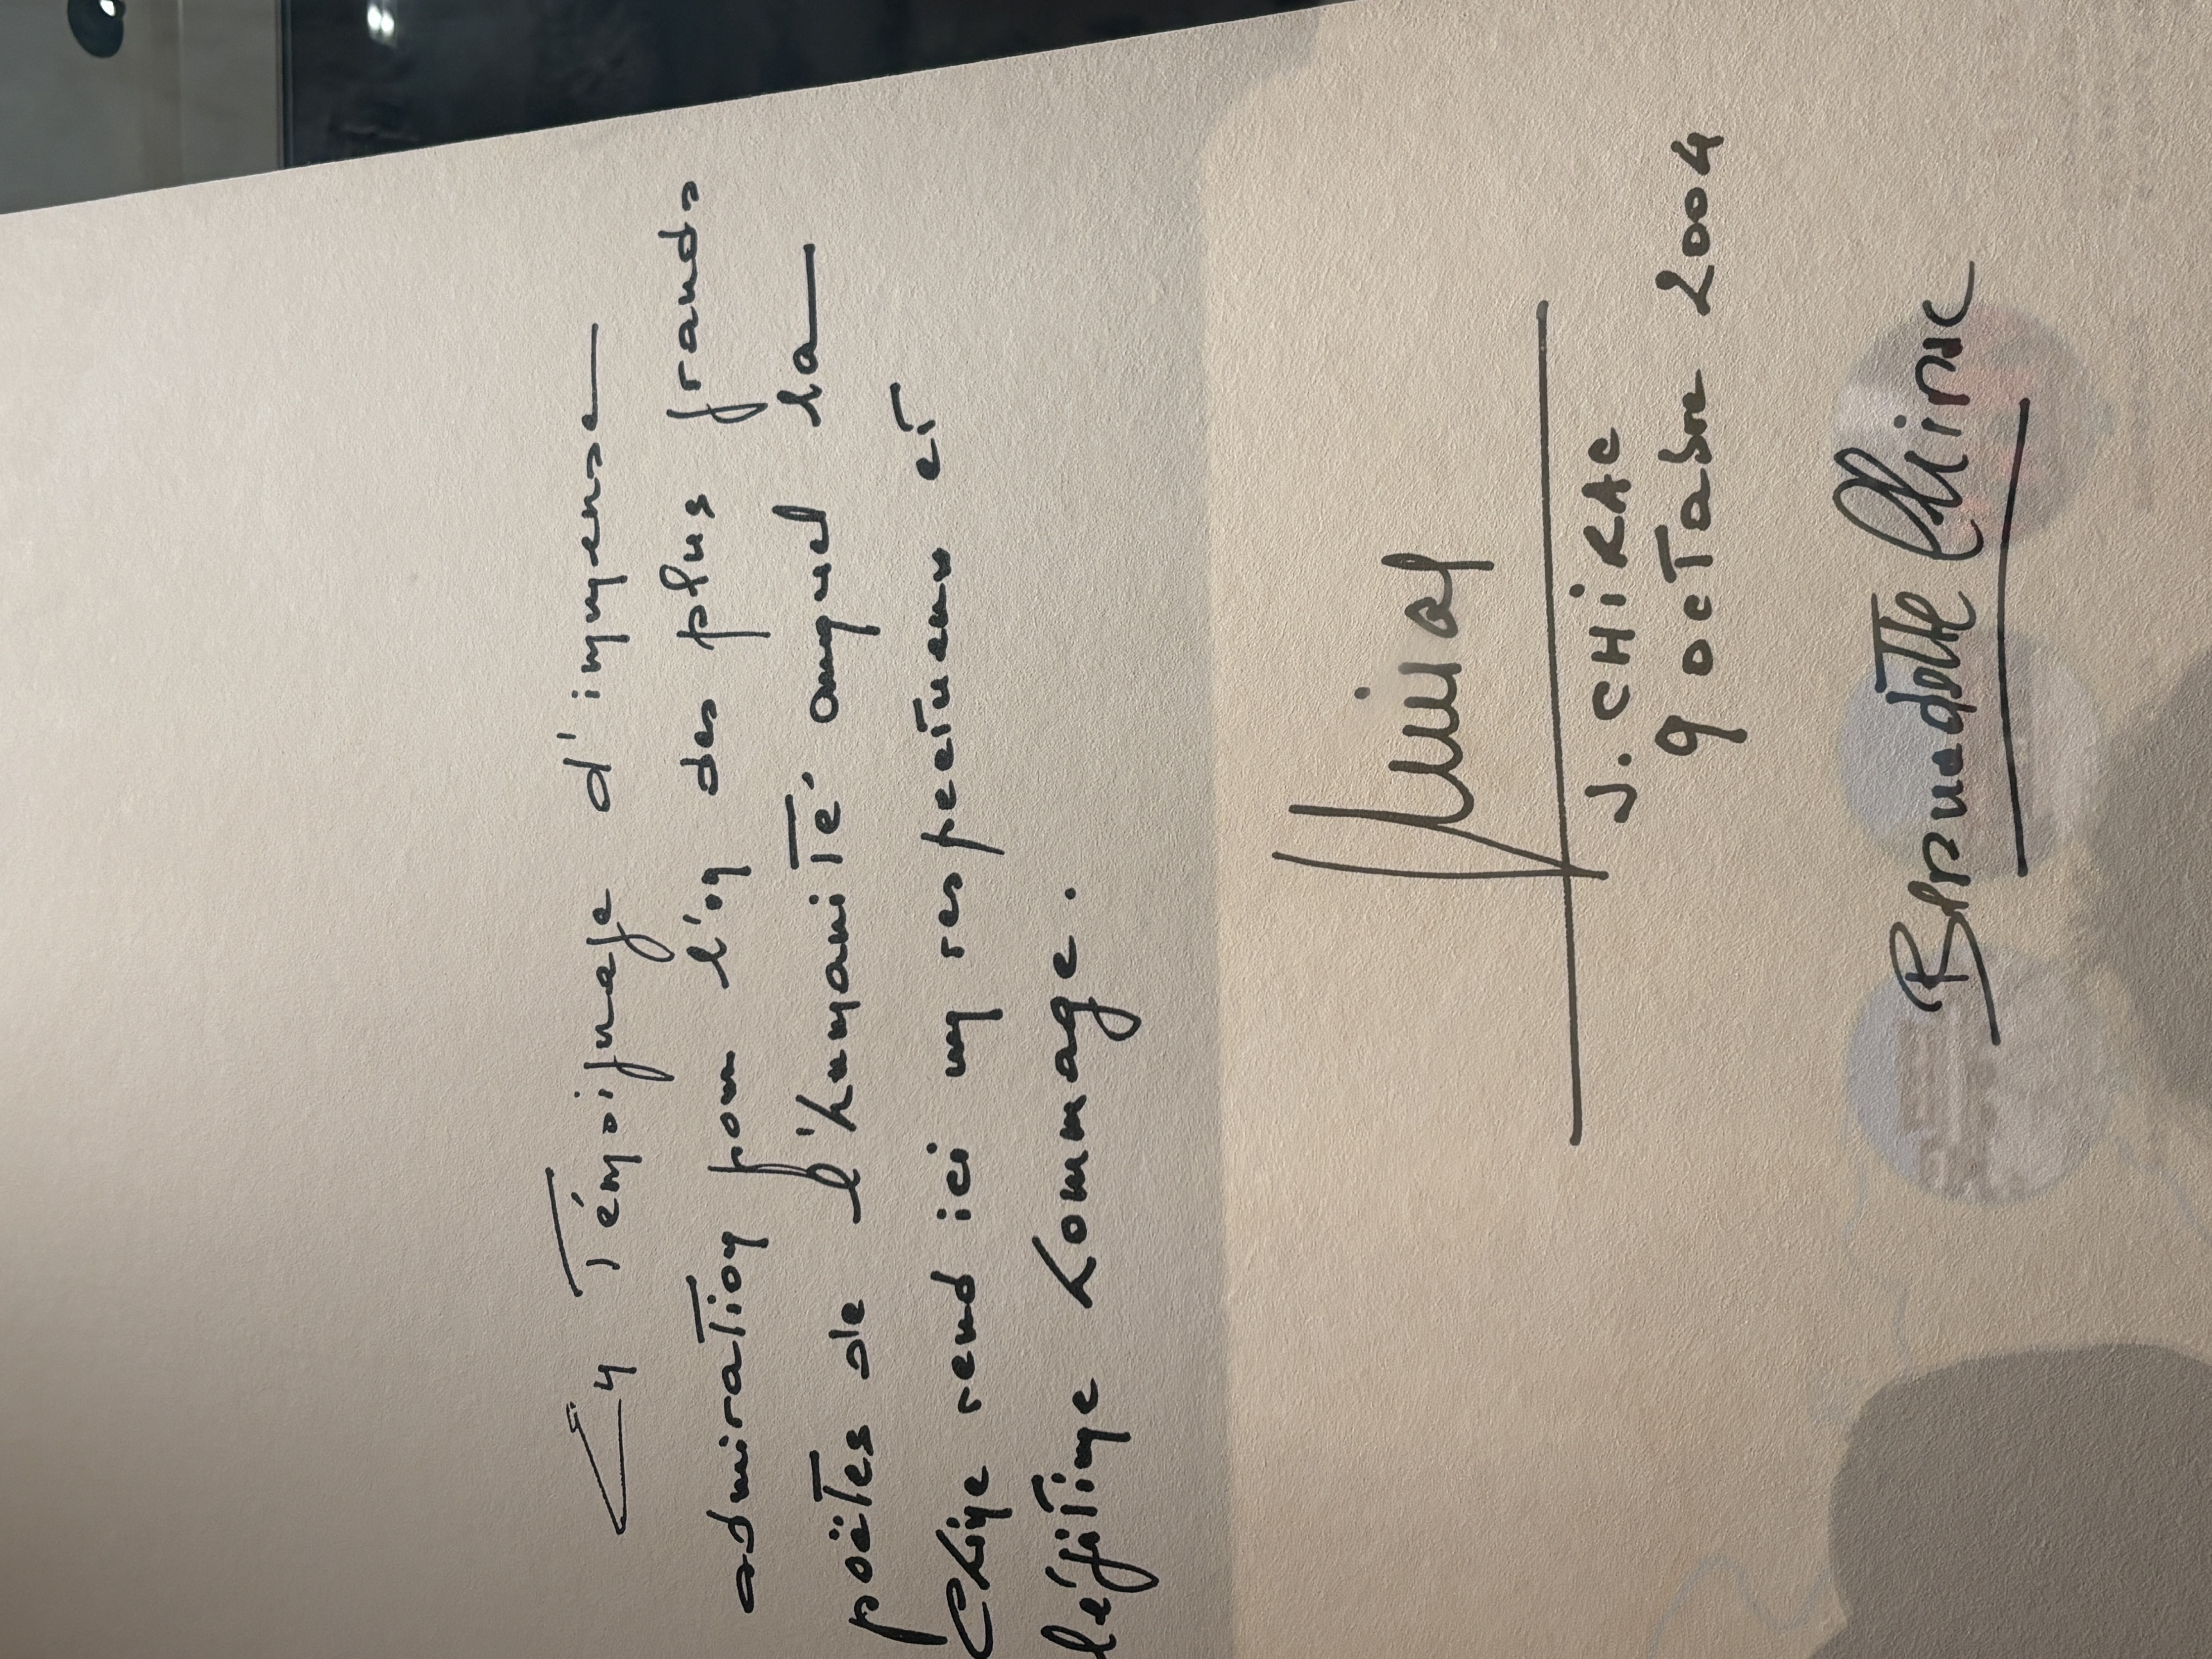 En Témoignage d'immense
admiration pour l'un des plus grands
poëtes de l'humanité auquel la
Chine rend ici un respectueux et
légitime hommage.
J. CHIRAC
9 octobre 2004
Bernadette Chirac